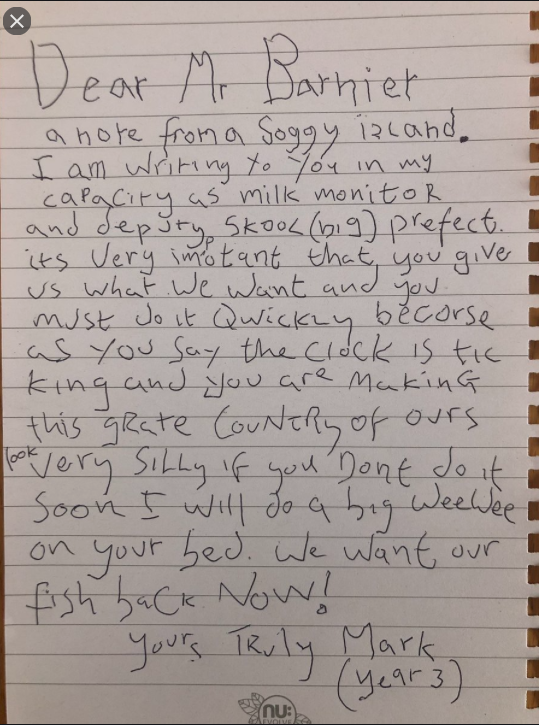 Dear Mr Barnier
a note from a Soggy island.
I am writing to You in my
capacity as milk monitoR
and deputy SKOOL (big) prefect.
its Very impotant that you give
us what we want and you
must do it Qwickly becorse
as you say the clock is tic
king and you are MaKinG
this gRate CouNtRy of ours
look very SiLLy if you Dont do it
Soon I will do a big WeeWee
on your bed. We want our
fish back NoW!
yours TRuly Mark
(year 3)
nu:
EVOLVE